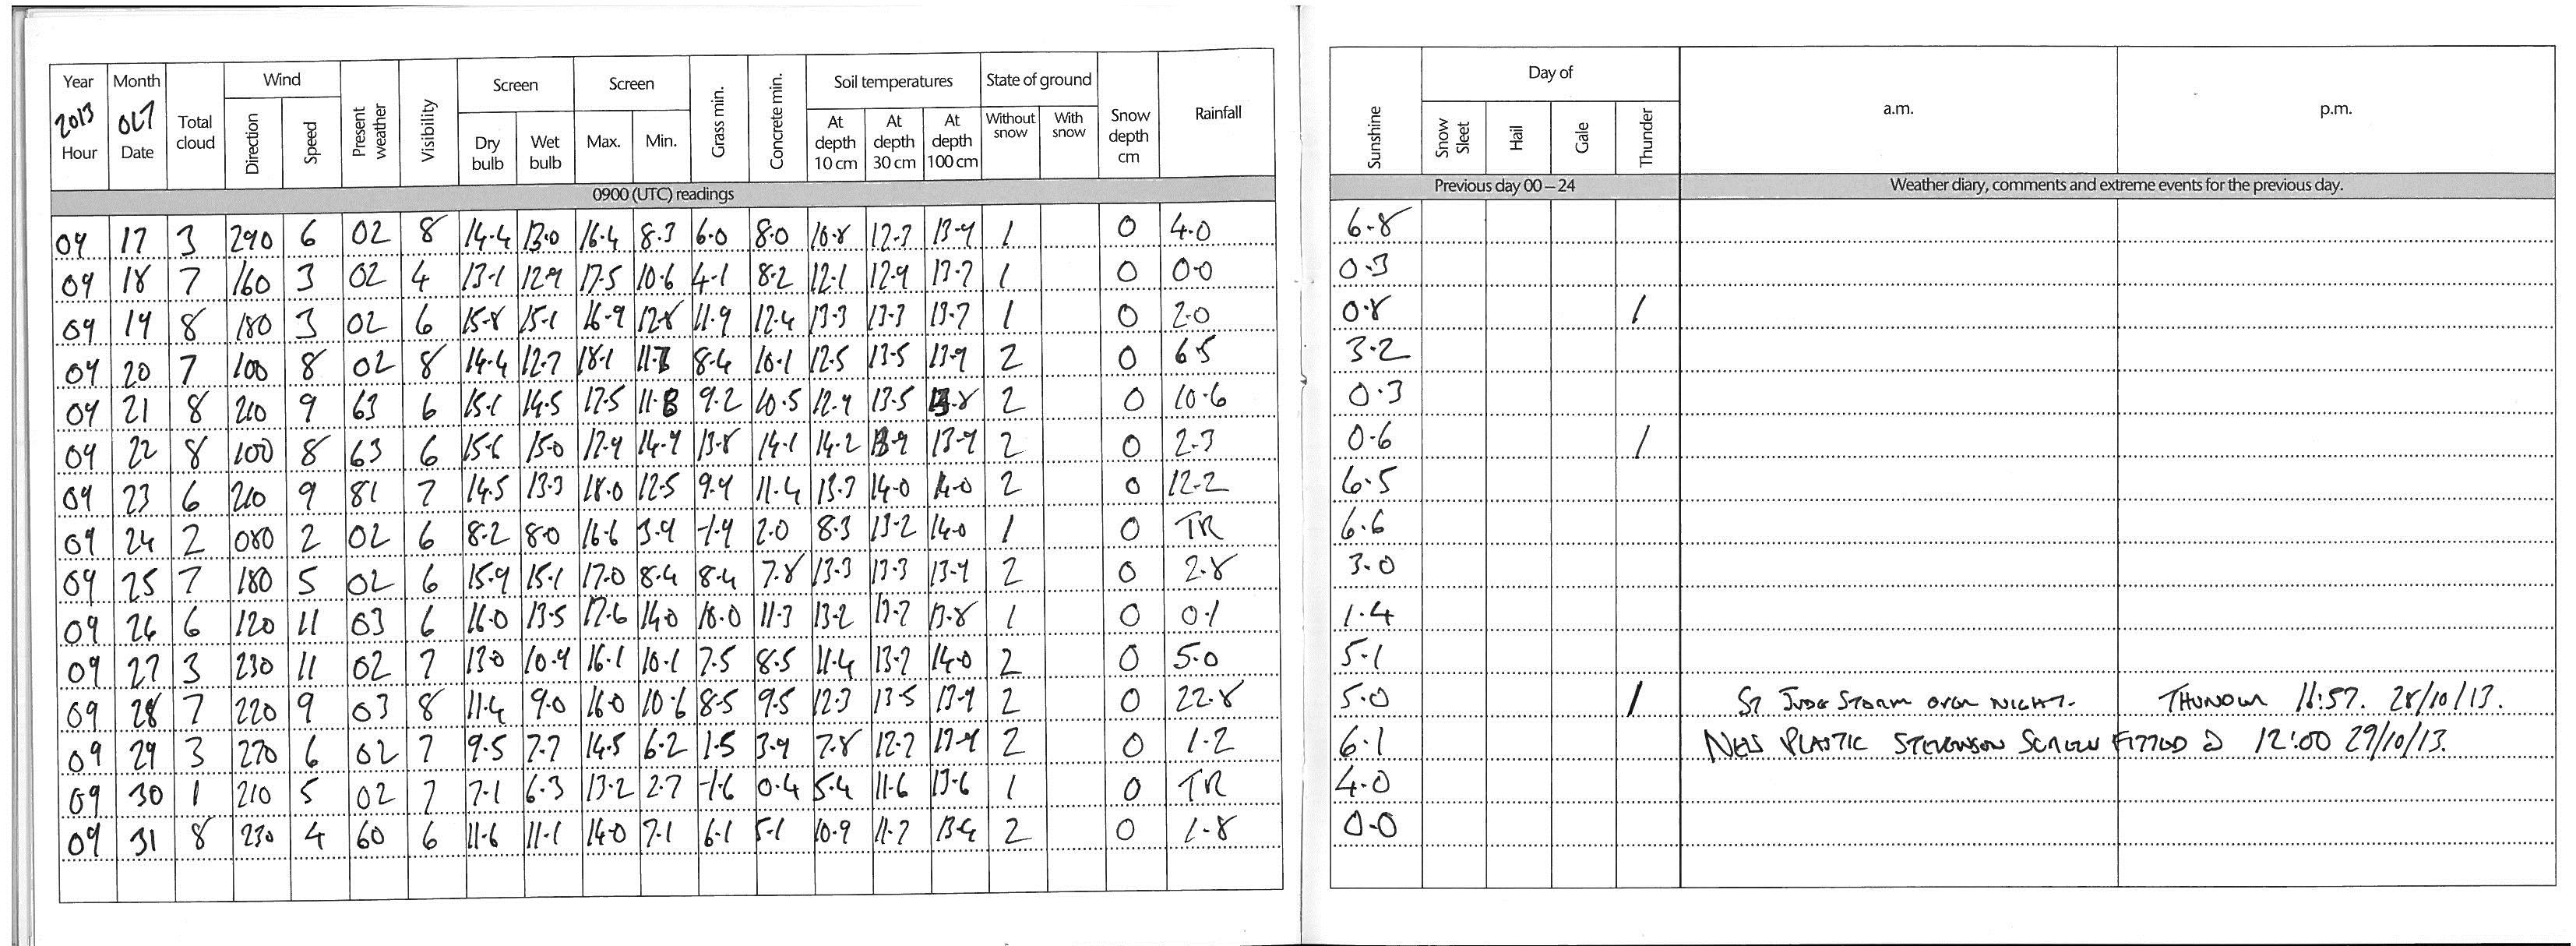 Year Month Total cloud Wind Present weather Visibility Screen Screen Grass min. Concrete min. Soil temperatures State of ground Snow depth cm Rainfall Sunshine Day of a.m. p.m.
2013 OCT Direction Speed Dry bulb Wet bulb Max. Min. At depth 10 cm At depth 30 cm At depth 100 cm Without snow With snow Snow Sleet Hail Gale Thunder
Hour Date
0900 (UTC) readings Previous day 00 – 24 Weather diary, comments and extreme events for the previous day.
09 17 3 290 6 02 8 14.4 13.0 16.4 8.3 6.0 8.0 10.8 12.7 13.9 1 0 4.0 6.8
09 18 7 160 3 02 4 13.1 12.9 17.5 10.6 4.1 8.2 12.1 12.9 13.7 1 0 0.0 0.3
09 19 8 180 3 02 6 15.8 15.1 16.9 12.8 11.9 12.4 13.3 13.3 13.7 1 0 2.0 0.8 1
09 20 7 100 8 02 8 14.4 12.7 18.1 8.4 10.1 12.5 13.5 13.9 2 0 6.5 3.2
09 21 8 210 9 63 6 15.1 14.5 17.5 11.8 9.2 10.5 12.9 13.5 13.8 2 0 10.6 0.3
09 22 8 100 8 63 6 15.6 15.0 17.9 14.9 13.8 14.1 14.2 13.9 13.9 2 0 2.3 0.6 1
09 23 6 210 9 81 7 14.5 13.3 18.0 12.5 9.9 11.4 13.7 14.0 14.0 2 0 12.2 6.5
09 24 2 080 2 02 6 8.2 8.0 16.6 3.9 -1.9 2.0 8.3 13.2 14.0 1 0 TR 6.6
09 25 7 180 5 02 6 15.9 15.1 17.0 8.4 8.4 7.8 13.3 13.3 13.9 2 0 2.8 3.0
09 26 6 120 11 03 6 16.0 13.5 17.6 14.0 10.0 11.3 13.2 13.7 13.8 1 0 0.1 1.4
09 27 3 230 11 02 7 13.0 10.9 16.1 10.1 7.5 8.5 11.4 13.7 14.0 2 0 5.0 5.1
09 28 7 220 9 03 8 11.4 9.0 16.0 10.6 8.5 9.5 12.3 13.5 13.9 2 0 22.8 5.0 1 ST JUDE STORM OVER NIGHT. THUNDER 11:57. 28/10/13.
09 29 3 270 6 02 7 9.5 7.7 14.5 6.2 1.5 3.9 7.8 12.7 13.9 2 0 1.2 6.1 NEW PLASTIC STEVENSON SCREEN FITTED @ 12:00 29/10/13.
09 30 1 210 5 02 7 7.1 6.3 13.2 2.7 -1.6 0.4 5.4 11.6 13.6 1 0 TR 4.0
09 31 8 230 4 60 6 11.6 11.1 14.0 7.1 6.1 5.1 10.9 11.7 13.4 2 0 1.8 0.0